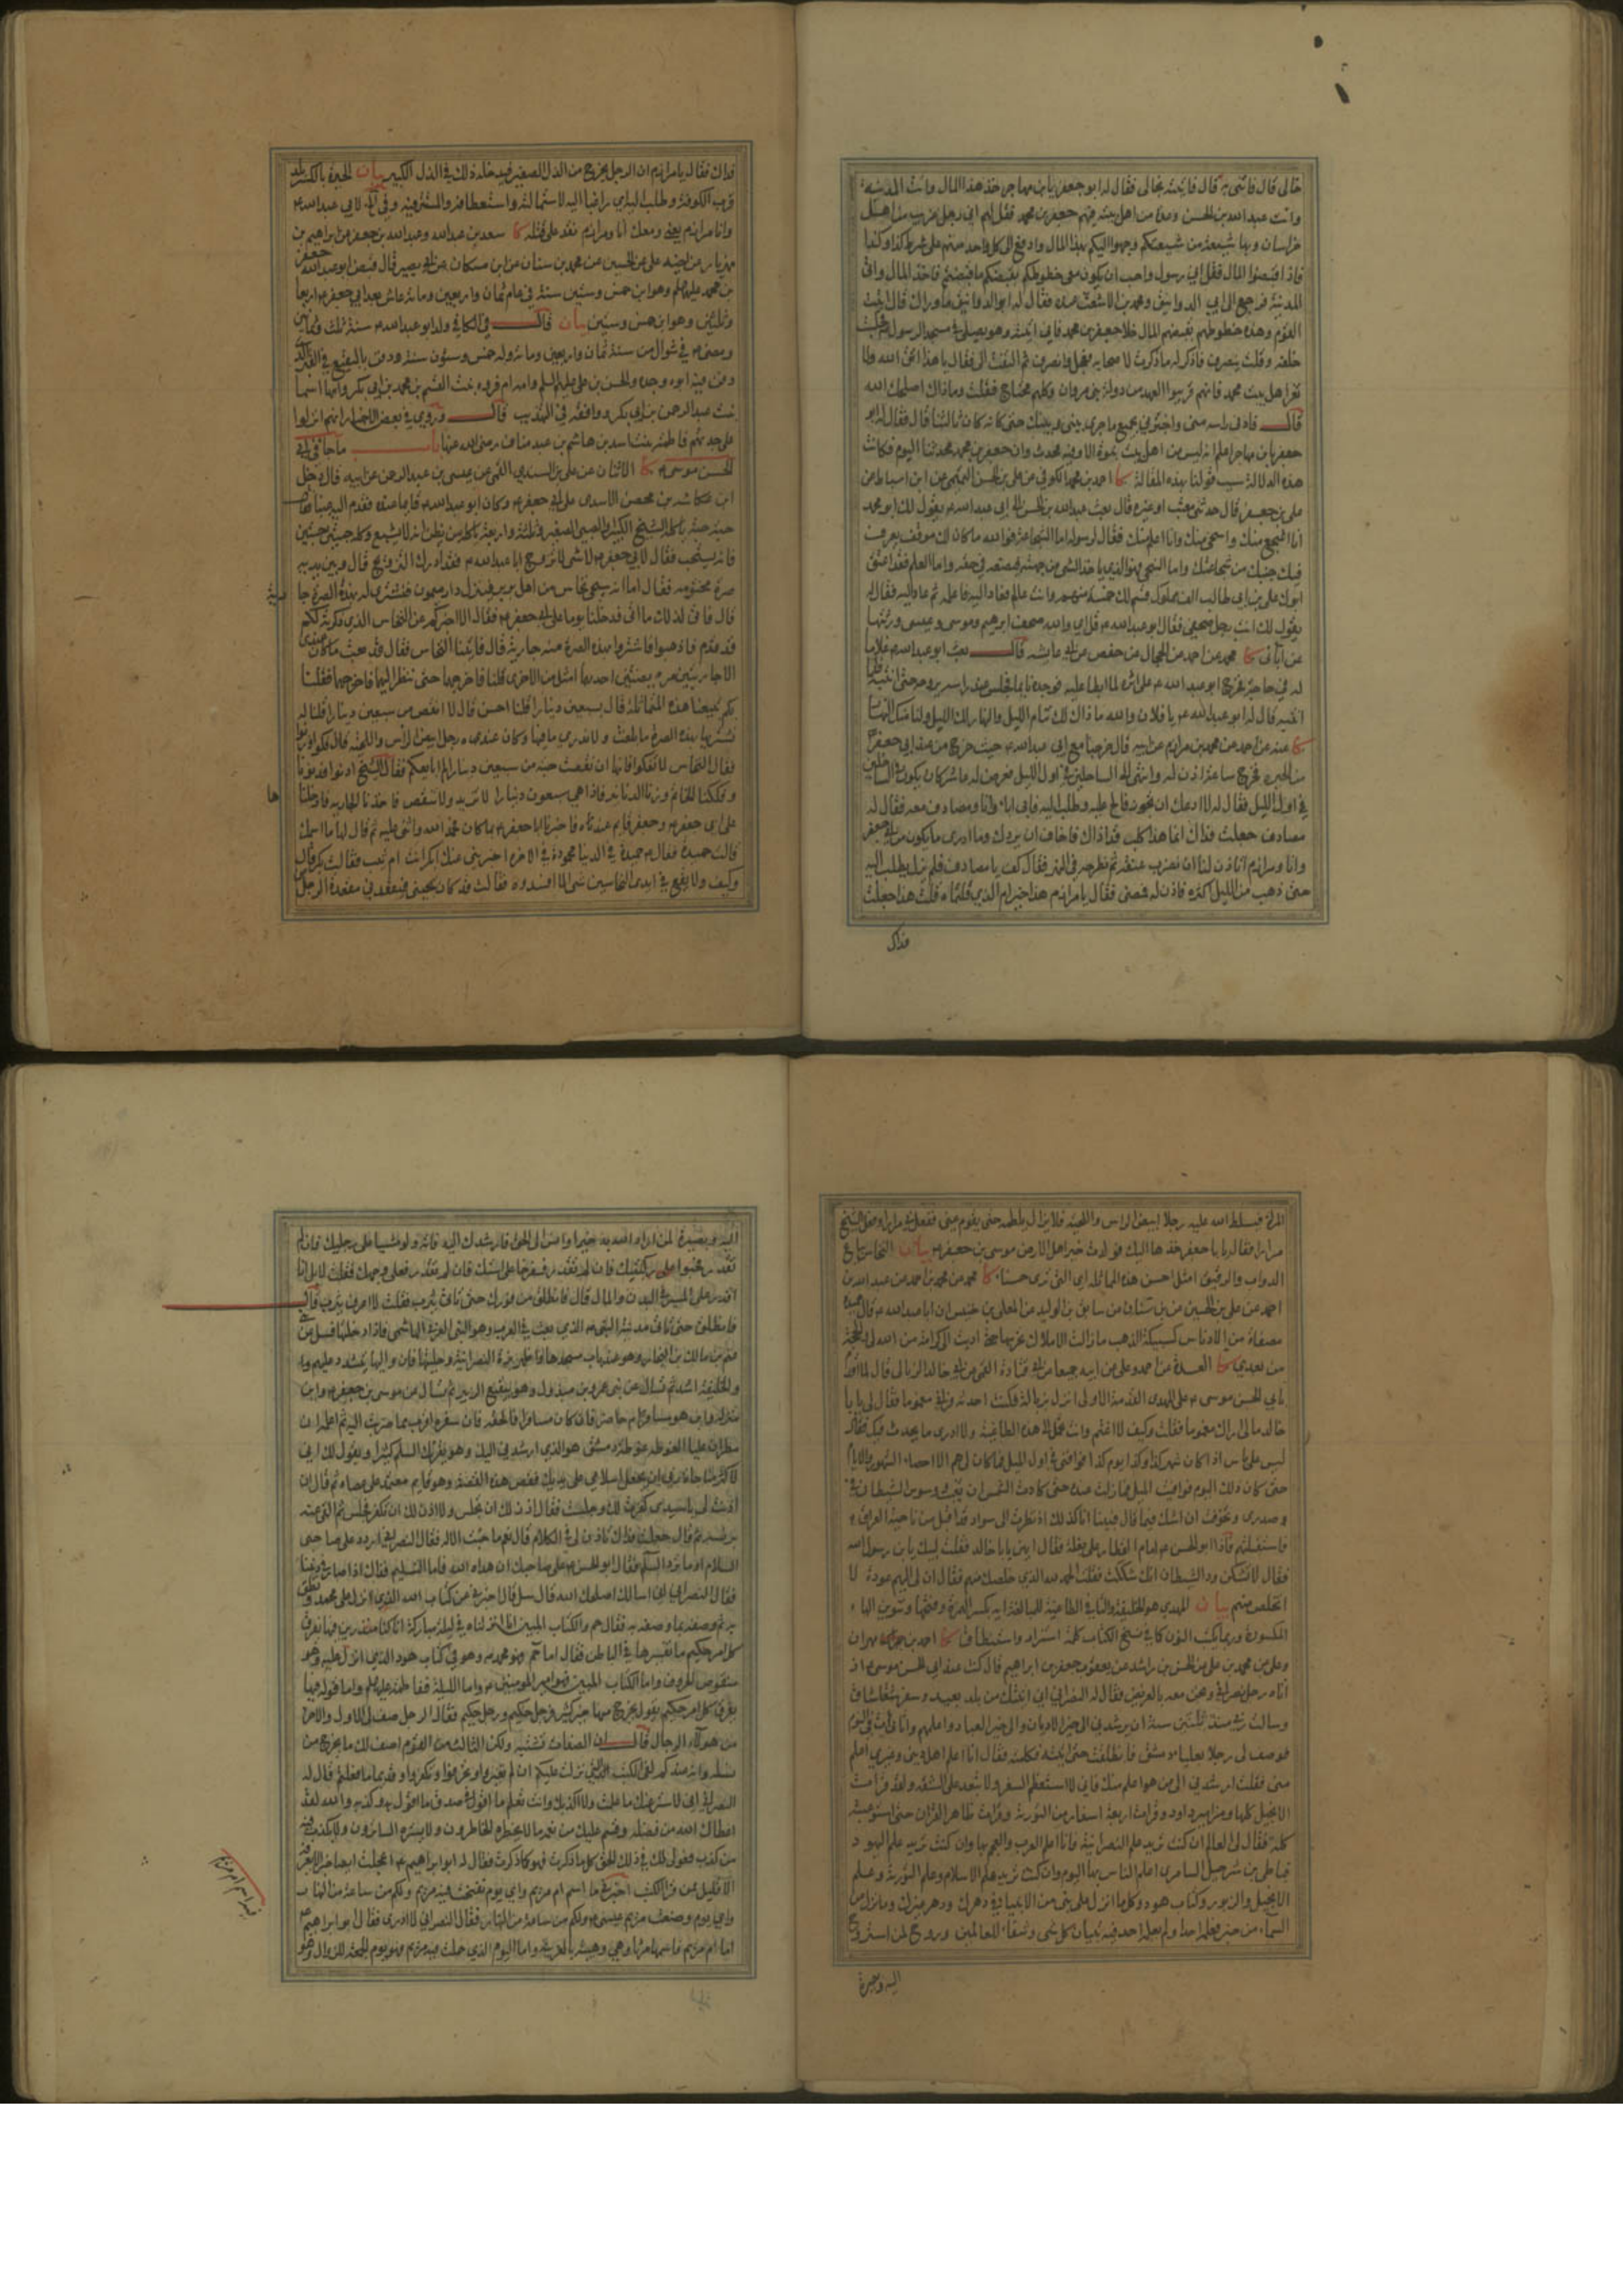 خالى قال فاتنى به قال فاتيته بخالى فقال له ابو جعفر يا بن مهاجر خذ هذا المال وائت المدينة
وائت عبد الله بن الحسن وعدة من اهل بيته فيهم جعفر بن محمد فقل لهم انى رجل غريب من اهل
خراسان وبها شيعة من شيعتكم وجهوا اليكم بهذا المال وادفع الى كل واحد منهم على شرط كذا وكذا
فاذا قبضوا المال فقل انى رسول واحب ان يكون معى خطوطكم بقبضكم ما قبضتم فاخذ المال واتى
المدينة فرجع الى ابى الدوانيق ومحمد بن الاشعث عنده فقال له ابو الدوانيق ما وراك قال اتيت
القوم وهذه خطوطهم بقبضهم المال خلا جعفر بن محمد فانى اتيته وهو يصلى فى مسجد الرسول فجلست
خلفه وقلت ينصرف فاذكر له ما ذكرت لاصحابه فعجل وانصرف ثم التفت الى فقال يا هذا اتق الله ولا
تغر اهل بيت محمد فانهم قريبوا العهد من دولة بنى مروان وكلهم محتاج فقلت وما ذاك اصلحك الله
قال فادنى راسه منى واخبرنى بجميع ما جرى بينى وبينك حتى كانه كان ثالثنا قال فقال له ابو
جعفر يا بن مهاجر اعلم انه ليس من اهل بيت نبوة الا وفيه محدث وان جعفر بن محمد محدثنا اليوم فكانت
هذه الدلالة سبب قولنا بهذه المقالة كا احمد بن محمد الكوفى عن على بن الحسن التيمى عن ابن اسباط عن
على بن جعفر قال حدثنى معتب او غيره قال بعث عبد الله بن الحسن الى ابى عبد الله ع يقول لك ابو محمد
انا اشجع منك واسخى منك وانا اعلم منك فقال لرسوله اما الشجاعة فوالله ما كان لك موقف يعرف
فيك جبنك من شجاعتك واما السخى فهو الذى ياخذ الشى من جهته فيضعه فى حقه واما العلم فقد اعتق
ابوك على بن ابى طالب الف مملوك فسم لنا خمسة منهم وانت عالم فعاد اليه فاعلمه ثم عاد اليه فقال له
يقول لك انت رجل صحفى فقال ابو عبد الله ع قل اى والله صحف ابراهيم وموسى وعيسى ورثتها
عن آبائى كا محمد عن احمد عن الحجال عن حفص بن ابى عايشه قال بعث ابو عبد الله ع غلاما
له فى حاجة فخرج ابو عبد الله ع على اثره لما ابطا عليه فوجده نايما فجلس عند راسه يروحه حتى انتبه فلما
انتبه قال له ابو عبد الله ع يا فلان والله ما ذاك لك تنام الليل والنهار لك الليل ولنا منك النهار
كا عنه عن احمد عن محمد بن مرازم عن ابيه قال خرجنا مع ابى عبد الله ع حيث خرج من عند ابى جعفر
من الحيرة فخرج ساعة اذن له وانتهى الى السالحين فى اول الليل فعرض له عاشر كان يكون فى السالحين
فى اول الليل فقال له لا ادعك ان تجوز فالح عليه وطلب اليه فابى اباء وانا ومصادف معه فقال له
مصادف جعلت فداك انما هذا كلب قد اذاك فاخاف ان يردك وما ادرى ما يكون من ابى جعفر
وانا ومرازم اتاذن لنا ان نضرب عنقه ثم نطرحه فى النهر فقال كف يا مصادف فلم يزل يطلب اليه
حتى ذهب من الليل اكثره فاذن له فمضى فقال يا مرازم هذا خير ام الذى قلتماه قلت هذا جعلت
فداك
فداك فقال يا مرازم ان الرجل يخرج من الذل الصغير فيدخله ذلك فى الذل الكبير بيان الحيرة بالكسر بلد
قرب الكوفة وطلب اليه راغبا اليه لاستمالته واستعطافه
وانا ومرازم يعنى ومعك انا ومرازم نقدر على قتله كا سعد بن عبد الله وعبد الله بن جعفر عن ابراهيم بن
مهزيار عن اخيه على عن الحسين عن محمد بن سنان عن ابن مسكان عن ابى بصير قال قبض ابو عبد الله جعفر
بن محمد عليهما السلم وهو ابن خمس وستين سنة فى عام ثمان واربعين ومائة وعاش بعد ابى جعفر ع اربعا
وثلثين وهو ابن خمس وستين بيان قال فى الكافى ولد ابو عبد الله ع سنة ثلث وثمانين
ومضى ع فى شوال من سنة ثمان واربعين ومائة وله خمس وستون سنة ودفن بالبقيع فى القبر الذى
دفن فيه ابوه وجده والحسن بن على عليهم السلم وامه ام فروة بنت القسم بن محمد بن ابى بكر وامها اسما
بنت عبد الرحمن بن ابى بكر ووافقه فى التهذيب قال وروى فى بعض الاخبار انهم انزلوا
على جدتهم فاطمة بنت اسد بن هاشم بن عبد مناف رضى الله عنها باب ما جاء فى ابى
الحسن موسى ع كا الاثنان عن على بن السندى القمى عن عيسى بن عبد الرحمن عن ابيه قال دخل
ابن عكاشة بن محصن الاسدى على ابى جعفر ع وكان ابو عبد الله ع قايما عنده فقدم اليه عنبا فقال
حبة حبة ياكله الشيخ الكبير والصبى الصغير وثلثة واربعة ياكله من يظن انه لا يشبع وكله حبتين حبتين
فانه يستحب فقال لابى جعفر ع لاى شى لا تزوج ابا عبد الله ع فقد ادرك التزويج قال وبين يديه
صرة مختومة فقال اما انه سيجى نخاس من اهل بربر فينزل دار ميمون فنشترى له بهذه الصرة جا
رية
قال فاتى لذلك ما اتى فدخلنا يوما على ابى جعفر ع فقال الا اخبركم عن النخاس الذى ذكرته لكم
قد قدم فاذهبوا فاشتروا بهذه الصرة منه جارية قال فاتينا النخاس فقال قد بعت ما كان عندى
الا جاريتين مريضتين احديهما امثل من الاخرى قلنا فاخرجهما حتى ننظر اليهما فاخرجهما فقلنا
بكم تبيعنا هذه المتماثلة قال بسبعين دينارا قلنا احسن قال لا انقص من سبعين دينارا قلنا له
نشتريها بهذه الصرة ما بلغت ولا ندرى ما فيها وكان عنده رجل ابيض الرأس واللحية قال فكوا وزنوا
فقال النخاس لا تفكوا فانها ان نقصت حبة من سبعين دينارا لم ابايعكم فقال الشيخ ادنوا فدنونا
وفككنا الخاتم ووزنا الدنانير فاذا هى سبعون دينارا لا تزيد ولا تنقص فاخذنا الجارية فادخلنا
ها
على ابى جعفر ع وجعفر قايم عنده فاخبرنا ابا جعفر ع بما كان فحمد الله واثنى عليه ثم قال لها ما اسمك
قالت حميدة فقال ع حميدة فى الدنيا محمودة فى الاخرة اخبرينى عنك ابكر انت ام ثيب فقالت بكر قال
وكيف ولا يقع فى ايدى النخاسين شى الا افسدوه فقالت قد كان يجيئنى فيقعد منى مقعد الرجل من
المراة فيسلط الله عليه رجلا ابيض الراس واللحية فلا يزال يلطمه حتى يقوم عنى ففعل بى مرارا وفعل الشيخ
مرارا فقال يا جعفر خذها اليك فولدت خير اهل الارض موسى بن جعفر ع بيان النخاس بياع
الدواب والرقيق امثل احسن هذه المماثلة اى التى ترى حسناء كا محمد عن محمد بن احمد عن عبد الله بن
احمد عن على بن الحسين عن بن سنان عن سابق بن الوليد عن المعلى بن خنيس ان ابا عبد الله ع قال حميدة
مصفاة من الادناس كسبيكة الذهب ما زالت الاملاك تحرسها حتى اديت الى كرامة من الله لى والحجة
من بعدى كا العدة عن احمد وعلى عن ابيه جميعا عن ابى قتادة القمى عن ابى خالد الزبالى قال لما اقدم
بابى الحسن موسى ع على المهدى القدمة الاولى انزل زبالة فكنت احدثه فرانى مغموما فقال لى يا با
خالد ما لى اراك مغموما فقلت وكيف لا اغتم وانت تحمل الى هذه الطاغية ولا ادرى ما يحدث فيك فقال
ليس على باس اذا كان شهر كذا وكذا ويوم كذا فوافنى فى اول الميل فما كان لى هم الا احصاء الشهور والايام
حتى كان ذلك اليوم فوافيت الميل فما زلت عنده حتى كادت الشمس ان تغيب ووسوس الشيطان فى
صدرى وتخوفت ان اشك فيما قال فبينا انا كذلك اذ نظرت الى سواد قد اقبل من ناحية العراق
فاستقبلتهم فاذا ابو الحسن ع امام القطار على بغلة فقال ايهن يا با خالد فقلت لبيك يا بن رسول الله
فقال لا تشكن ود الشيطان انك شككت فقلت الحمد لله الذى خلصك منهم فقال ان لى اليهم عودة لا
اتخلص منهم بيان المهدى هو الخليفة والتاء فى الطاغية للمبالغة ايه بكسر الهمزة وفتحها وتنوين الهاء
المكسورة وربما يكتب النون كما فى نسخ الكتاب كلمة استزادة واستنطاق كا احمد بن مهران
وعلى عن محمد بن على عن الحسن بن راشد عن يعقوب بن جعفر بن ابراهيم قال كنت عند ابى الحسن موسى ع اذ
اتاه رجل نصرانى ونحن معه بالعريض فقال له النصرانى انى اتيتك من بلد بعيد وسفر شاق
وسالت ربى منذ ثلثين سنة ان يرشدنى الى خير الاديان والى خير العباد واعلمهم واتانى آت فى النوم
فوصف لى رجلا بعليا دمشق فانطلقت حتى اتيته فكلمته فقال انا اعلم اهل دينى وغيرى اعلم
منى فقلت ارشدنى الى من هو اعلم منك فانى لا استعظم السفر ولا تبعد على الشقة ولقد قرات
الانجيل كلها ومزامير داود وقرات اربعة اسفار من التورية وقرات ظاهر القران حتى استوعبته
كله فقال لى العالم ان كنت تريد علم النصرانية فانا اعلم العرب والعجم بها وان كنت تريد علم اليهود
فباطى بن شرحبيل السامرى اعلم الناس بها اليوم وان كنت تريد علم الاسلام وعلم التورية وعلم
الانجيل والزبور وكتاب هود وكلما انزل على نبى من الانبيا فى دهرك ودهر غيرك وما نزل من
السماء من خبر فعلمه احد او لم يعلم به احد فيه تبيان كل شى وشفاء للعالمين وروح لمن استروح
اليه وبصيرة
اليه وبصيرة لمن اراد الله به خيرا وانس الى الحق فارشدك اليه فاته ولو مشيا على رجليك فان لم
تقدر فحبوا على ركبتيك فان لم تقدر فزحفا على استك فان لم تقدر فعلى وجهك فقلت لا بل انا
اقدر على المسير فى البدن والمال قال فانطلق من فورك حتى تاتى يثرب فقلت لا اعرف يثرب قال
فانطلق حتى تاتى مدينة النبى ص الذى بعث فى العرب وهو النبى العربى الهاشمى فاذا دخلتها فسل عن بنى
غنم بن مالك بن النجار وهو عند باب مسجدها واظهر بزة النصرانية وحليتها فان واليها يتشدد عليهم
والخليفة اشد ثم تسال عن بنى عمرو بن مبذول وهو ببقيع الزبير ثم تسال عن موسى بن جعفر ع واين
منزله واين هو مسافر ام حاضر فان كان مسافرا فالحقه فان سفره اقرب مما ضربت اليه ثم اعلمه ان
مطران عليا الغوطة غوطة دمشق هو الذى ارشدنى اليك وهو يقرئك السلم كثيرا ويقول لك انى
لاكثر مناجاة ربى ان يجعل اسلامى على يديك فقص هذه القصة وهو قايم معتمد على عصاه ثم قال ان
اذنت لى يا سيدى كفرت لك وجلست فقال اذن لك ان تجلس ولا اذن لك ان تكفر فجلس ثم القى عنه
برنسه ثم قال جعلت فداك تاذن لى فى الكلام قال نعم ما جئت الا له فقال النصرانى اردد على صاحبى
السلام او ما ترد السلم فقال ابو الحسن ع على صاحبك ان هداه الله فاما التسليم فذاك اذا صار فى ديننا
فقال النصرانى انى اسالك اصلحك الله قال سل قال اخبرنى عن كتاب الله الذى انزل على محمد ونطق
به ثم وصفه بما وصفه به فقال حم والكتاب المبين انا انزلناه فى ليلة مباركة انا كنا منذرين فيها يفرق
كل امر حكيم ما تفسيرها فى الباطن فقال اما حم فهو محمد ص وهو فى كتاب هود الذى انزل عليه وهو
منقوص الحروف واما الكتاب المبين فهو امير المومنين ع واما الليلة ففاطمة عليها السلم واما قوله فيها
يفرق كل امر حكيم يقول يخرج منها خير كثير فرجل حكيم ورجل حكيم فقال الرجل صف لى الاول والاخر
من هولاء الرجال قال ان الصفات تشتبه ولكن الثالث من القوم اصف لك ما يخرج من
نسله وانه عندكم لفى الكتب التى نزلت عليكم ان لم تغيروا وتحرفوا وتكفروا وقديما ما فعلتم قال له
النصرانى انى لا استر عنك ما علمت ولا اكذبك وانت تعلم ما اقول فى صدق ما اقول وكذبه والله لقد
اعطاك الله من فضله وقسم عليك من نعمه ما لا يخطره الخاطرون ولا يستره الساترون ولا يكذب فيه
من كذب فقولى لك فى ذلك الحق كل ما ذكرت فهو كما ذكرت فقال له ابو ابراهيم ع اعجلك ايضا خبرا لا يعرفه
الا قليل ممن قرا الكتب اخبرنى ما اسم ام مريم واى يوم نفخت فيه مريم ولكم من ساعة من النهار
واى يوم وضعت مريم عيسى ع ولكم من ساعة من النهار فقال النصرانى لا ادرى فقال ابو ابراهيم ع
اما ام مريم فاسمها مرثا وهى وهيبة بالعربية واما اليوم الذى حملت فيه مريم فهو يوم الجمعة للزوال وهو
فيه اسم ام مريم